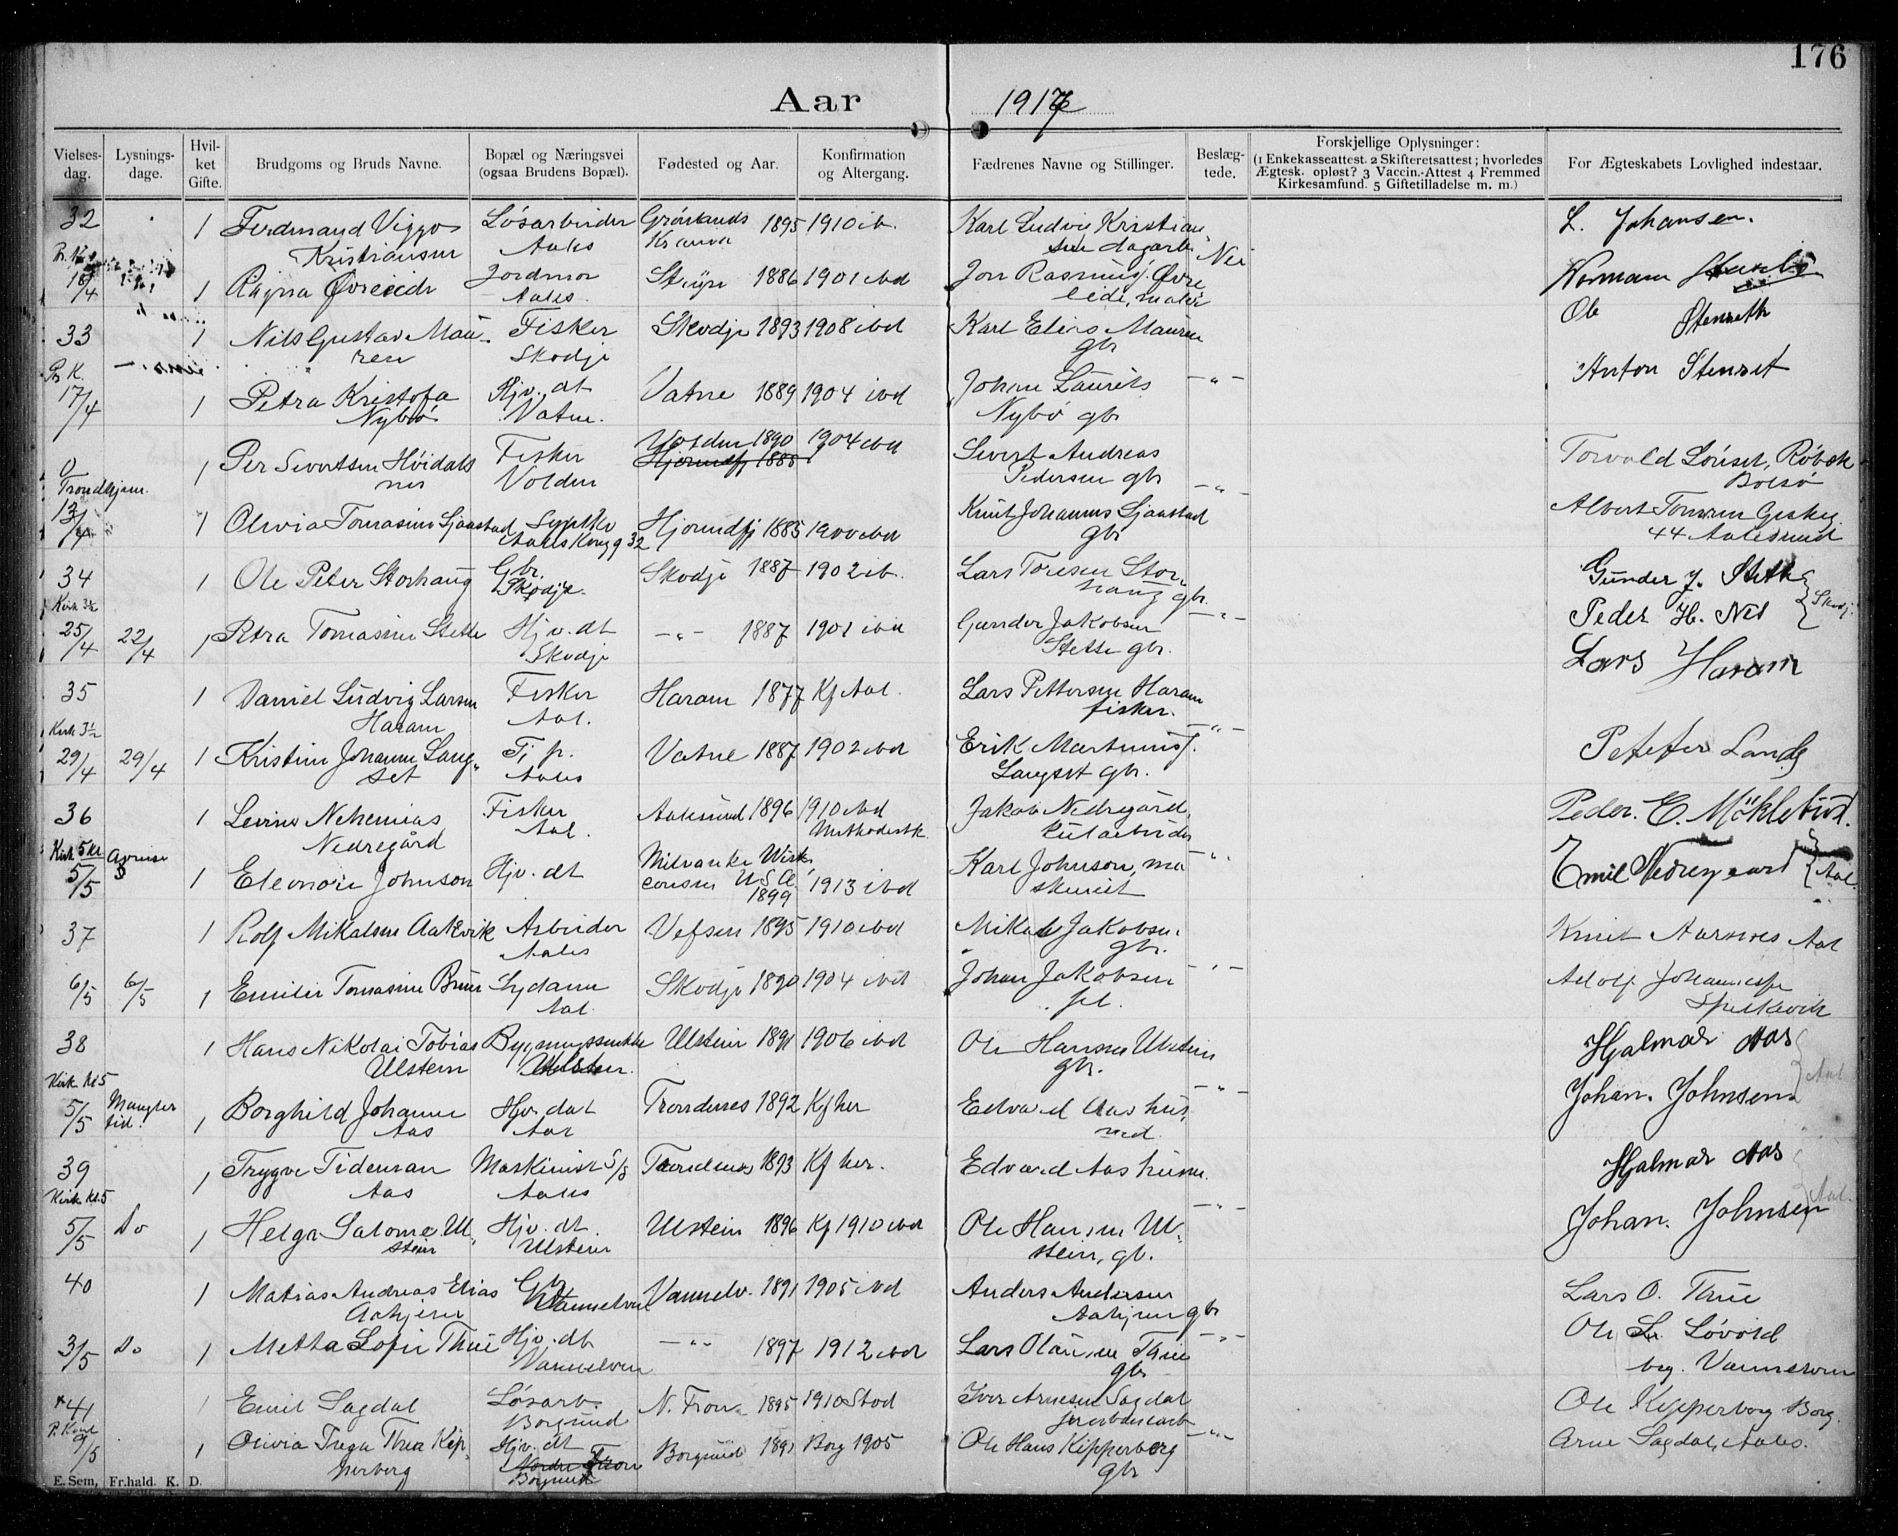 176
Aar 1917
Vielses-dag. Lysnings-dage. Hvil-ket Gifte. Brudgoms og Bruds Navne. Bopæl og Næringsvei (ogsaa Brudens Bopæl). Fødested og Aar. Konfirmation og Altergang. Fædrenes Navne og Stillinger. Beslæg-tede. Forskjellige Oplysninger: (1 Enkekasseattest. 2 Skifteretsattest; hvorledes Ægtesk. opløst? 3 Vaccin.-Attest 4 Fremmed Kirkesamfund. 5 Giftetilladelse m. m.) For Ægteskabets Lovlighed indestaar.
32 1 Ferdinand Viggo Løsarbeider 1895 1910 ib. Karl Ludvig Kristian L. Johansen.
Kristiansen Aales sen dagarb. Nei
4 1 Ragna Øvreeide Jordmor 1886 1901 ibd Jon Rasmus Øvre Normann
Aales. eide, maler
33 1 Nils Gustav Mau- Fisker Skodje 1893 1908 ibd Karl Elias Mauren Ole Stenseth
ren Skodje gbr
17/4 1 Petra Kristofa Hjv. dt Vatne 1889 1904 ibd Johan Laurits — " — Anton Stenset
Nybø Vatne. Nybø gbr
0 1 Per Sivertsen Høidals Fisker Volden 1890 1904 ibd Sivert Andreas Torvald Lönset, Röbek
nes Volden Hjørundfj 1885 Pedersen gbr — " — Bolsø
Trondhjem.
13/4 1 Olivia Tomasine Sjaastad Hjørundfj 1885 1900 ibd Knut Johannes Sjaastad Albert
Aales Kongg 32 gbr 44 Aalesund
34 1 Ole Peter Storhaug Gbr. Skodje 1887 1902 ib. Lars Toresen Stor- Gunder J. Stette
Skodje. haug gbr. Skodj.
25/4 22/4 1 Petra Tomasine Stette Hjv. dt — " — 1887 1901 ibd Gunder Jakobsen — " — Peder H.
Skodje Stette gbr.
35 1 Daniel Ludvig Larsen Fisker Haram 1877 Kf Aal. Lars Pettersen Haram Lars Haram
Haram Aal. fisker.
29/4 29/4 1 Kristine Johanne Lang- Vatne 1887 1902 ibd Erik Martinus — " —
set Aales Langset gbr.
36 1 Levine Nehemias Fisker Aalesund 1896 1910 ibd Jakob Nedregård, Peder. E. Möklebust.
Nedregård Aal. Methodistk.
5/5 1 Eleonore Johnson Hjv. dt Milvauke Wisk- 1913 ibd Karl Johnson, ma Emil Nedregaard Aal.
consin USA 1899 skinist
37 1 Rolf Mikalsen Aakvik Arbeider Vefsen 1895 1910 ibd Mikal Jakobsen Knut Aarnes Aal
Aales gbr.
6/5 6/5 1 Emilie Tomasine Sydame Skodje 1890 1904 ibd Johan Jakobsen — " — Adolf
Aal. Spelkavik
38 1 Hans Nikolai Tobias Ulstein 1891 1906 ibd Ole Hansen Ulstein Hjalmar Aas
Ulstein Ulstein. gbr. Aal
Kirk. kl 5
5/5 Mangler tid. 1 Borghild Johanne Hjv. dat Trondenes 1892 Kf her Edvard Aas hus- — " — Johan. Johnsen
Aas Aal
39 1 Trygve Tideman Maskinist S/S 1893 Kf her. Edvard Aas Hjalmar Aas
Aas Aales Aal.
Kirk kl. 5
5/5 Do 1 Helga Salome Ul- Hjv. dt. Ulstein 1896 Kf 1910 ibd Ole Hansen Ul- — " — Johan. Johnsen
stein Ulstein stein, gbr.
40 1 Matias Andreas Elias Gbr Vannelv. 1891 1905 ibd Anders Andersen Lars O. Thue
Aahjem Vannelven Aahjem gbr
3/5 Do 1 Metta Sofie Thue Hjv. dt — " — 1897 1912 ibd Lars Thue — " — Ole Løvold
Vannelven gbr beg. Vannelven
41 1 Emil Sagdal Løsarb. N. Fron 1895 1910 Stod Iver Arnesen Sagdal Ole Kipperberg Borg.
Borgund
9/5 1 Olivia Thea Kip- Hjv. dt Borgund 1891 Borg 1905 Ole Hans Kipperberg — " — Arne Sagdal, Aales.
perberg Nordre Fron gbr
Borgund
E. Sem, Fr.hald. K. D.